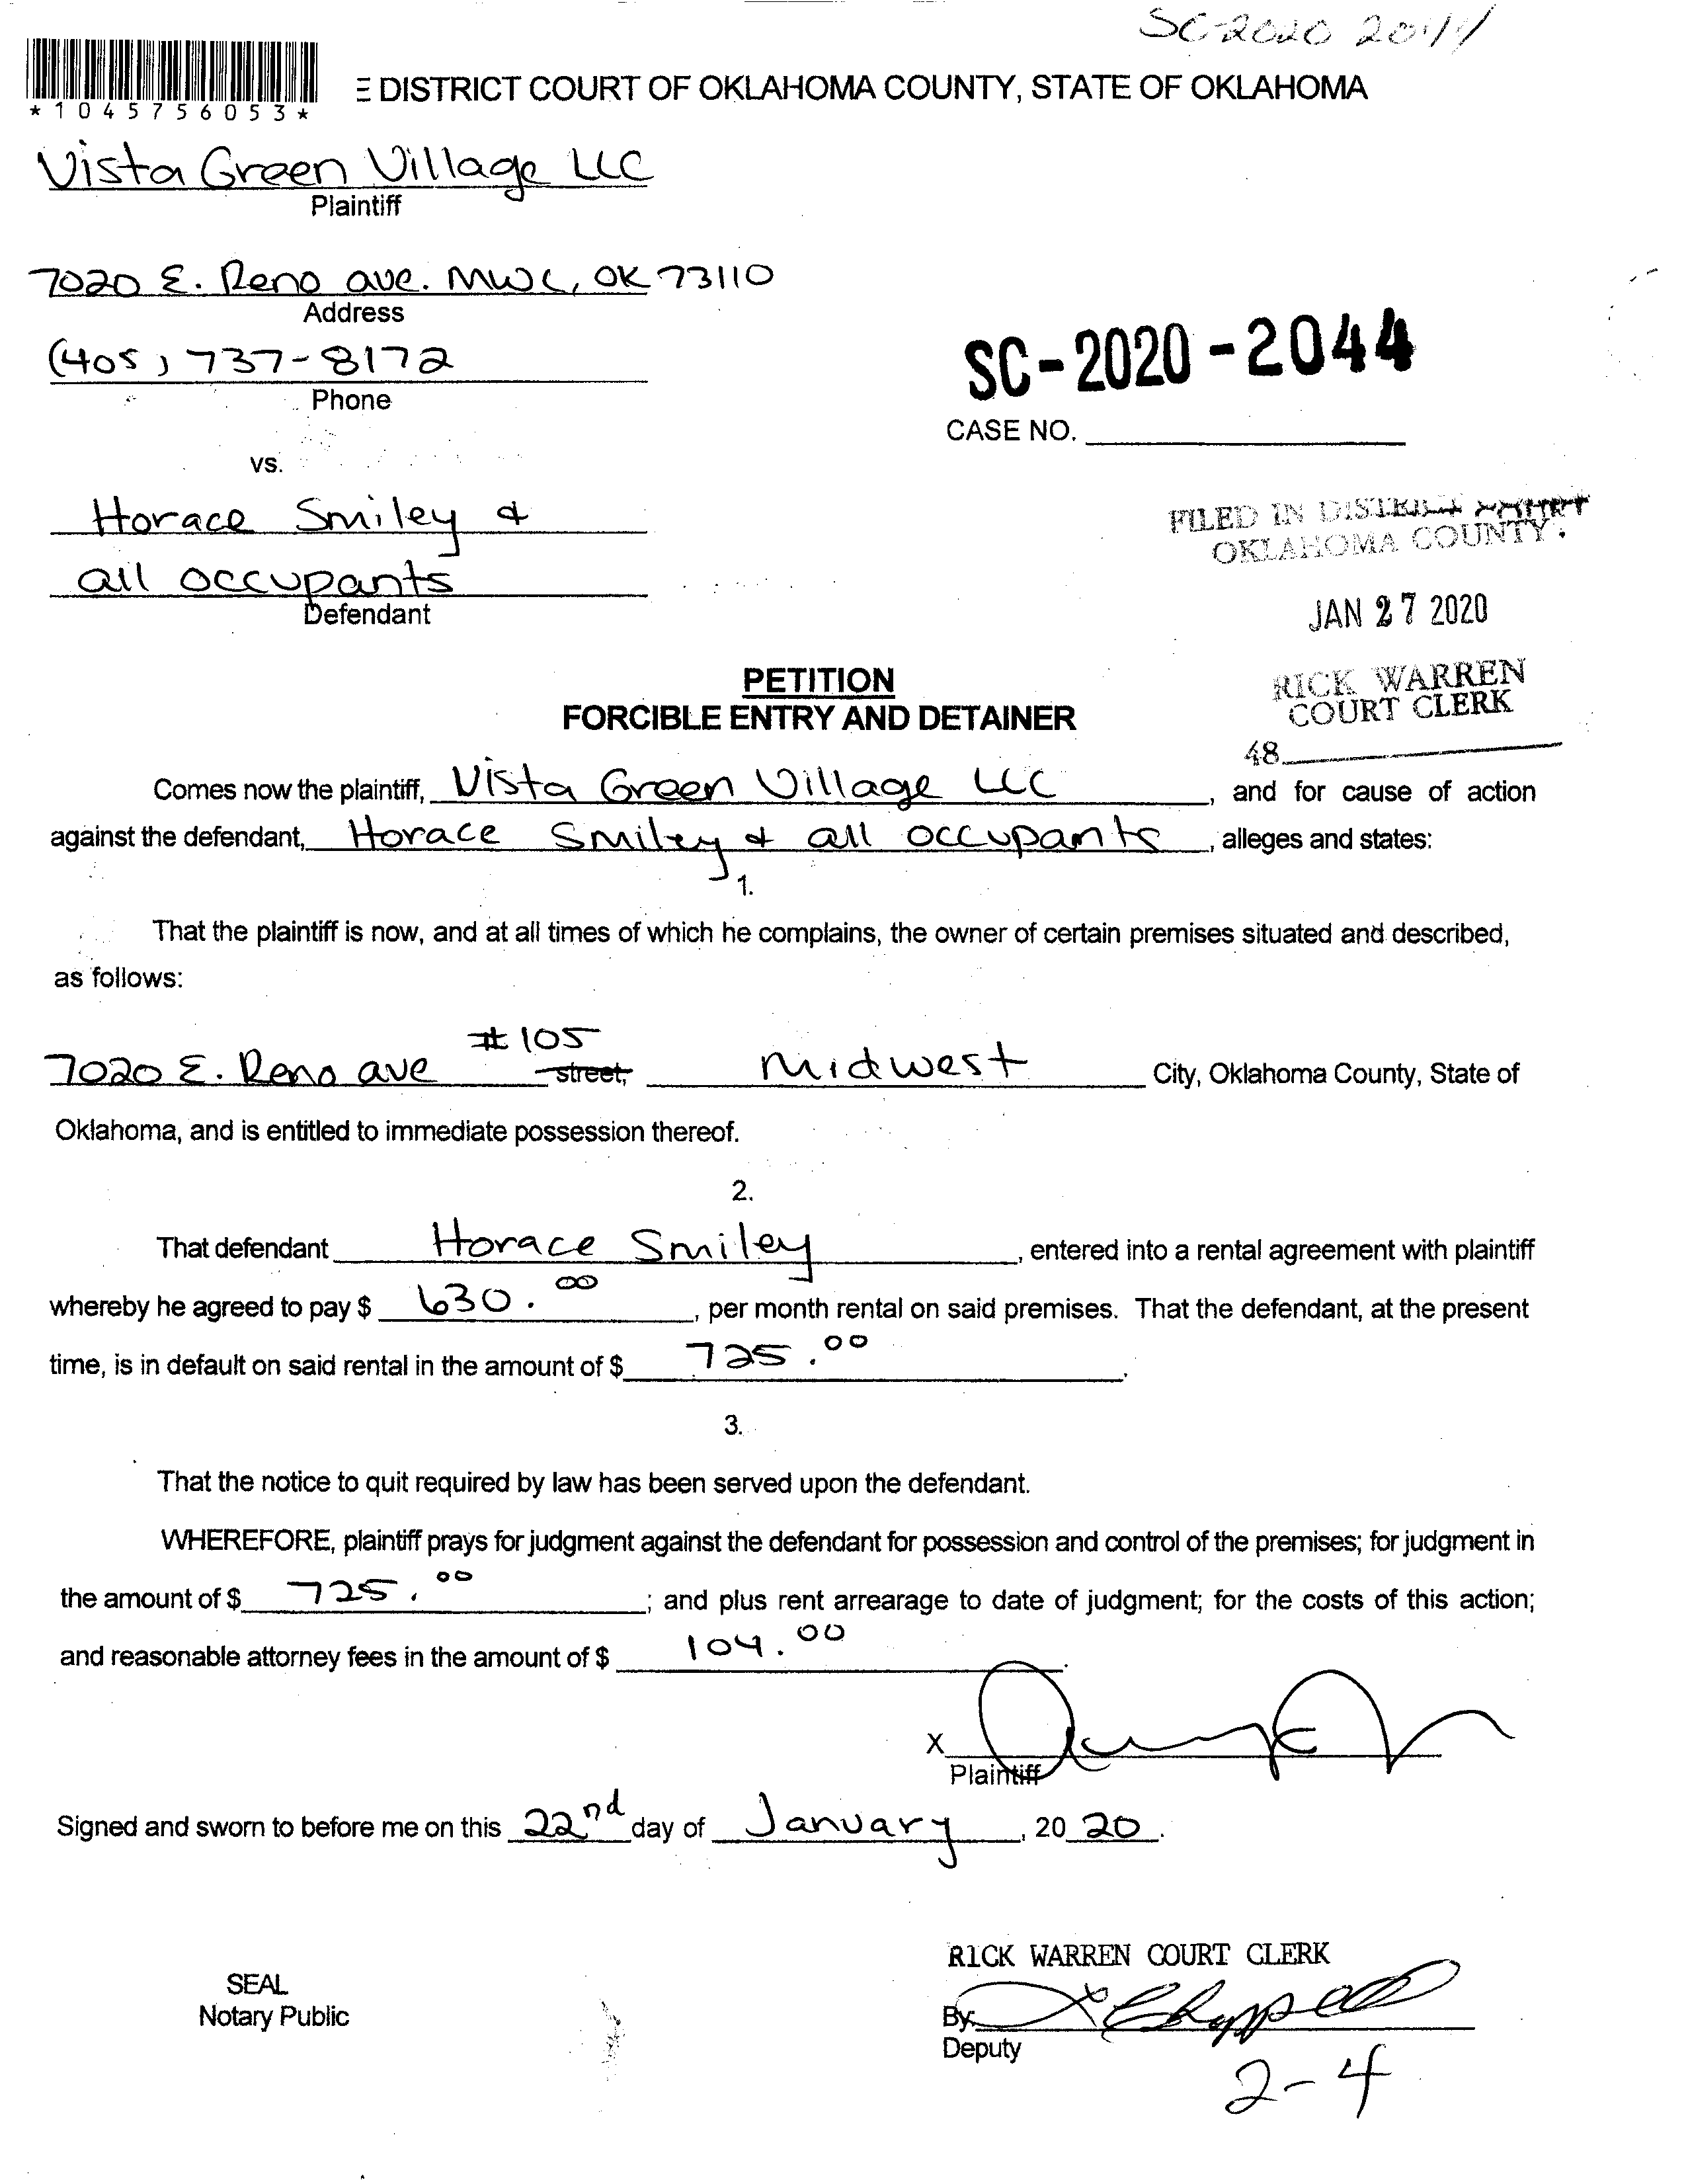 SC-2020 2044
*1045756053*
E DISTRICT COURT OF OKLAHOMA COUNTY, STATE OF OKLAHOMA
Vista Green Village LLC
Plaintiff
7020 E. Reno ave. MWC, OK 73110
Address
(405) 737-8172
Phone
SC-2020-2044
CASE NO.
vs.
Horace Smiley &
all occupants
Defendant
FILED IN DISTRICT COURT
OKLAHOMA COUNTY.
JAN 27 2020
RICK WARREN
COURT CLERK
48
PETITION
FORCIBLE ENTRY AND DETAINER
Comes now the plaintiff, Vista Green Village LLC, and for cause of action
against the defendant, Horace Smiley & all occupants, alleges and states:
1.
That the plaintiff is now, and at all times of which he complains, the owner of certain premises situated and described,
as follows:
7020 E. Reno ave #105 street, Midwest City, Oklahoma County, State of
Oklahoma, and is entitled to immediate possession thereof.
2.
That defendant Horace Smiley, entered into a rental agreement with plaintiff
whereby he agreed to pay $ 630.00, per month rental on said premises. That the defendant, at the present
time, is in default on said rental in the amount of $ 725.00.
3.
That the notice to quit required by law has been served upon the defendant.
WHEREFORE, plaintiff prays for judgment against the defendant for possession and control of the premises; for judgment in
the amount of $ 725.00; and plus rent arrearage to date of judgment; for the costs of this action;
and reasonable attorney fees in the amount of $ 104.00.
X
Plaintiff
Signed and sworn to before me on this 22nd day of January, 2020.
RICK WARREN COURT CLERK
SEAL
Notary Public
By
Deputy
2-4